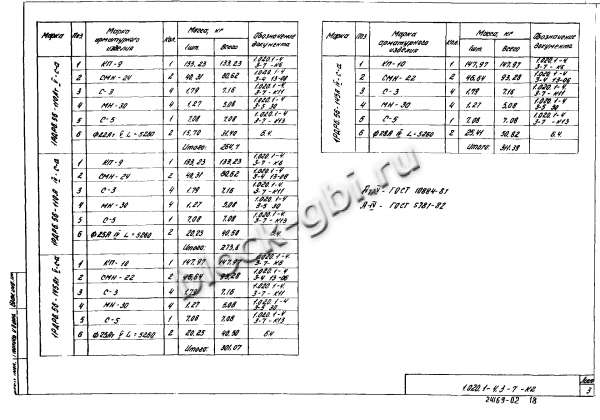 Марка Поз Марка арматурного изделия Кол. Масса, кг 1шт. Всего Обозначение документа
1 КП-9 1 133,23 133,23 1.020.1-4 3-7-К6
2 СМН-24 2 40,31 80,62 1.020.1-4 3-4 13-08
3 С-3 4 1,79 7,16 1.020.1-4 3-7-К11
4 МН-30 4 1,27 5,08 1.020.1-4 3-5 30
5 С-5 1 7,08 7,08 1.020.1-4 3-7-К13
2 15,70 31,40 б.ч.
Итого:
1 КП-9 1 133,23 133,23 1.020.1-4 3-7-К6
2 СМН-24 2 40,31 80,62 1.020.1-4 3-4 13-08
3 С-3 4 1,79 7,16 1.020.1-4 3-7-К11
4 МН-30 4 1,27 5,08 1.020.1-4 3-5 30
5 С-5 1 7,08 7,08 1.020.1-4 3-7-К13
6 L=5260 2 20,25 40,50 б.ч.
Итого:
1 КП-10 1 147,97 147,97 1.020.1-4 3-7-К6
2 СМН-22 2 46,64 93,28 1.020.1-4 3-4 13-06
3 С-3 4 1,79 7,16 1.020.1-4 3-7-К11
4 МН-30 4 1,27 5,08 1.020.1-4 3-5 30
5 С-5 1 7,08 7,08 1.020.1-4 3-7-К13
6 L=5260 2 20,25 40,50 б.ч.
Итого: 301,07
Марка Поз. Марка арматурного изделия Кол. Масса, кг 1шт. Всего Обозначение документа
1 КП-10 1 147,97 147,97 1.020.1-4 3-7-К6
2 СМН-22 2 46,64 93,28 1.020.1-4 3-4 13-06
3 С-3 4 1,79 7,16 1.020.1-4 3-7-К11
4 МН-30 4 1,27 5,08 1.020.1-4 3-5 30
5 С-5 1 7,08 7,08 1.020.1-4 3-7-К13
6 L=5260 2 25,41 50,82 б.ч.
Итого: 311.39
ГОСТ 10884-81
А-IV - ГОСТ 5781-82
block-gbi.ru
1.020.1-4.3-7-К2
Лист 3
24169-02 18